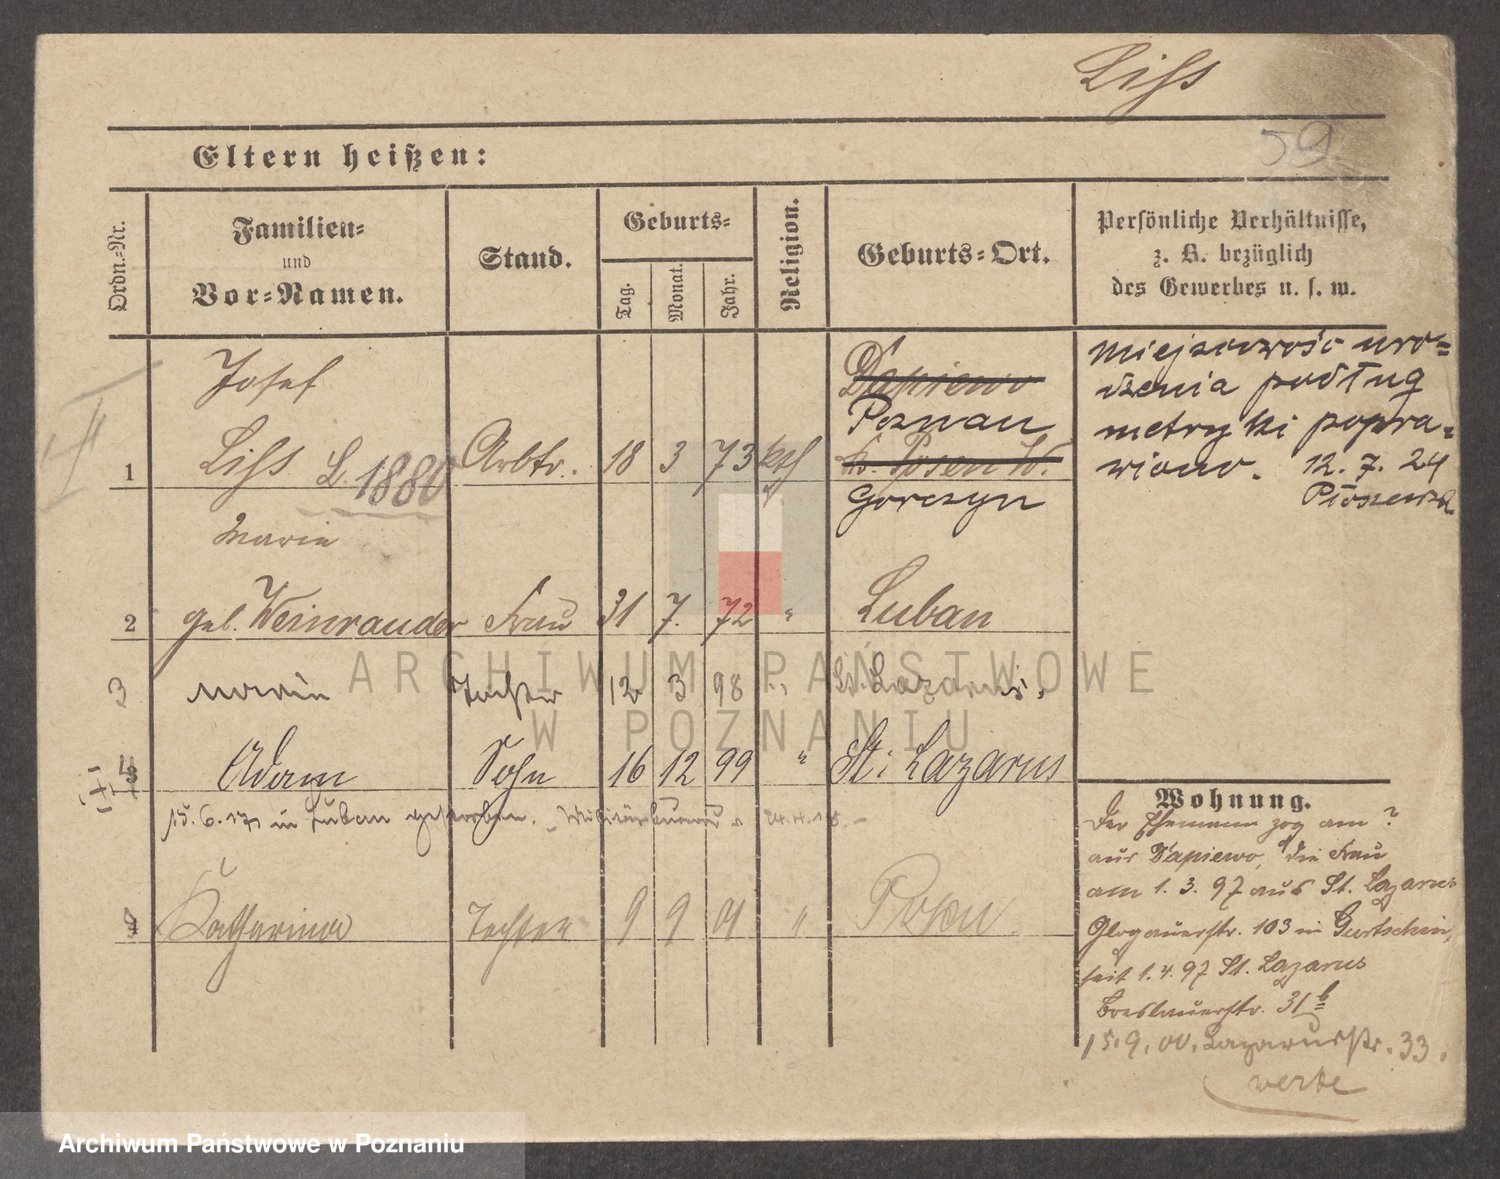 Liss
59
Eltern heißen:
Ordn.-Nr.
Familien-
und
Vor-Namen.
Stand.
Geburts-
Tag.
Monat.
Jahr.
Religion.
Geburts-Ort.
Persönliche Verhältnisse,
z. B. bezüglich
des Gewerbes u. s. w.
Josef
Dąpiewo
Poznań
1 Liss L. 1880 Arbtr. 18 3 73 kth Kr. Posen W.
Gorczyn
Miejscowość uro-
dzenia podług
metryki popra-
wiono. 12. 7. 24
Marie
2 geb. Weinrauder Frau 31 7. 72 " Luban
3 Marie Tochter 12 3 98 " St. Lazarus.
4 Adam Sohn 16 12 99 " St. Lazarus
15. 6. in Luban gestorben.
4 Katharina Tochter 9 9 01 " Posen
Wohnung.
Der Ehemann zog am ?
aus Dąpiewo, die Frau
am 1. 3. 97 aus St. Lazarus
Glogauerstr. 103 in Gurtschin,
seit 1. 4. 97 St. Lazarus
Breslauerstr. 31 b
15. 9. 00. Lazarusstr. 33.
verte
ARCHIWUM PAŃSTWOWE
W POZNANIU
Archiwum Państwowe w Poznaniu